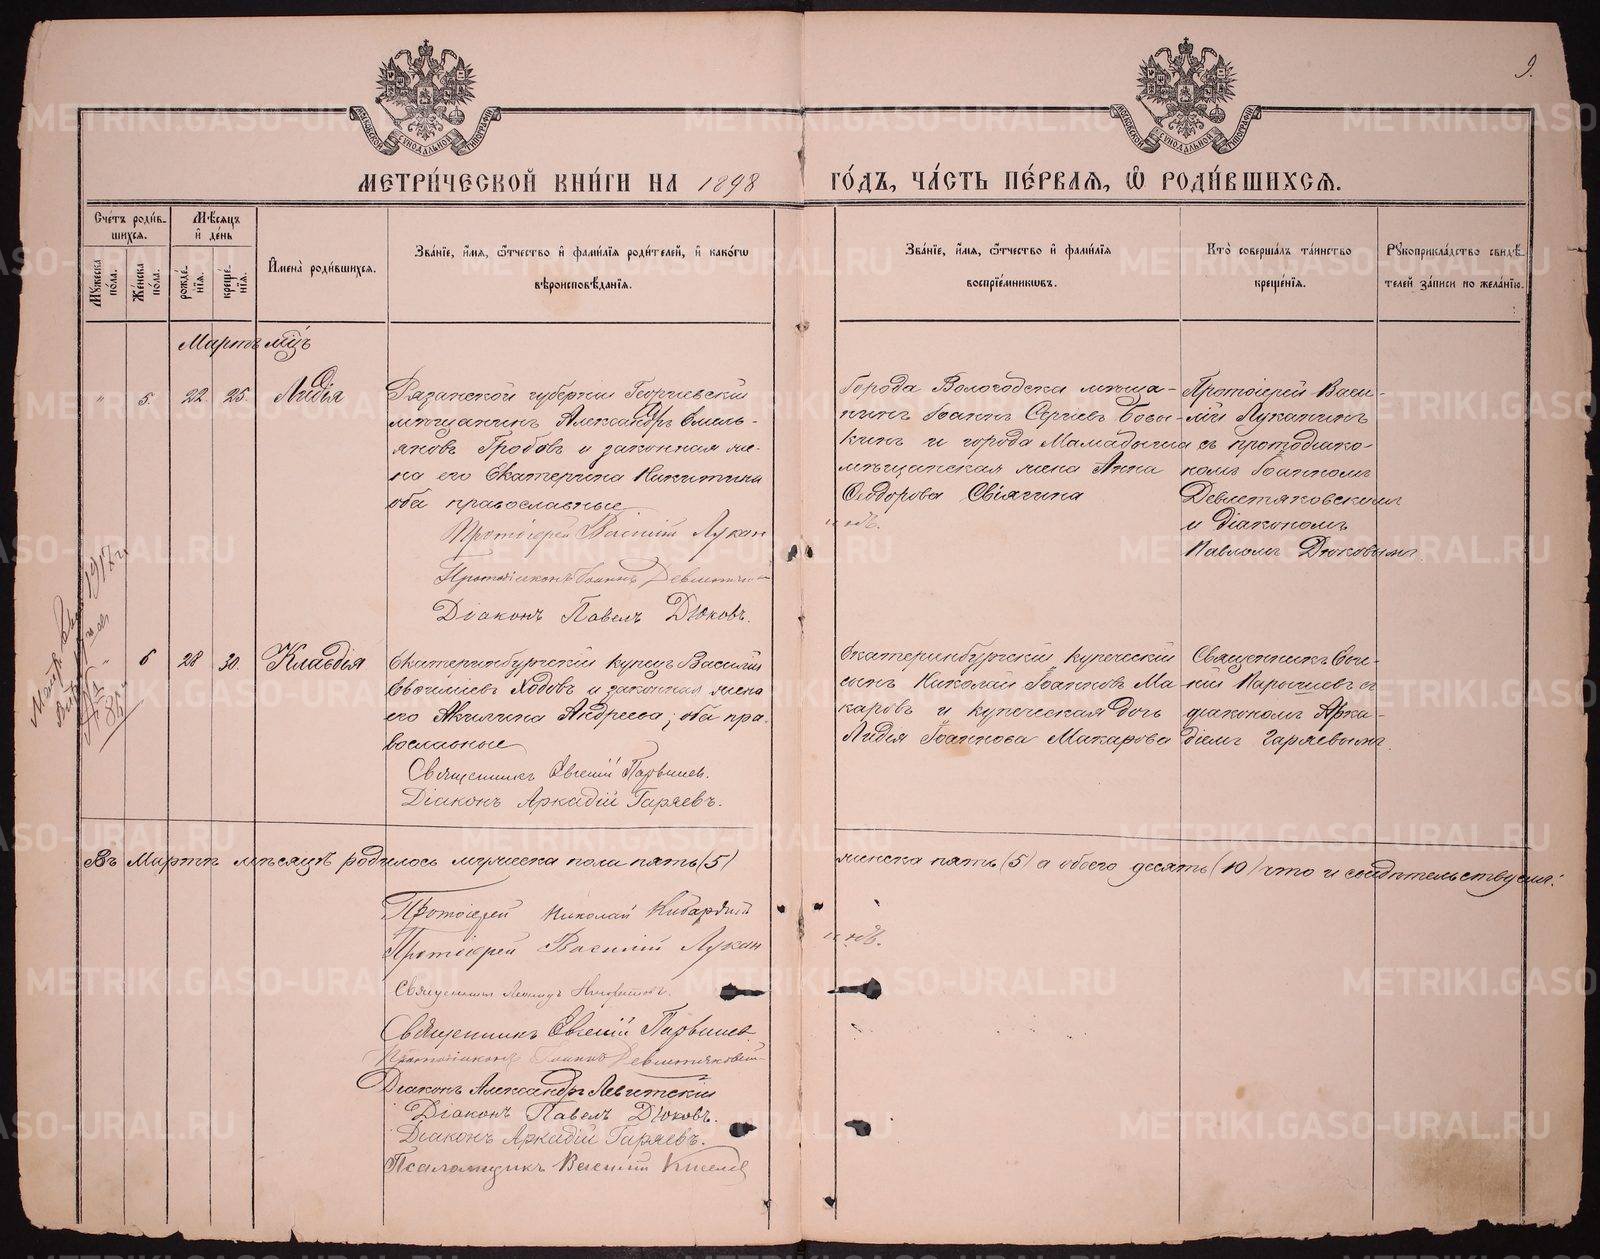 9.
МОСКОВСКОЙ СѴНОДАЛЬНОЙ ТИПОГРАФІИ
МОСКОВСКОЙ СѴНОДАЛЬНОЙ ТИПОГРАФІИ
МЕТРИ́ЧЕСКОЙ КНИ́ГИ НА 1898 ГО́ДЪ, ЧА́СТЬ ПЕ́РВАѦ, Ѡ҆ РОДИ́ВШИХСѦ.
Сче́тъ роди́в-
шихсѧ.
Мѣ́сѧцъ
и҆ де́нь
Мꙋ́жеска по́ла.
Же́нска по́ла.
рожде́-
нїѧ.
креще́-
нїѧ.
И҆мена̀ роди́вшихсѧ.
Зва́нїе, и҆́мѧ, ѻ҆́тчество и҆ фами́лїѧ роди́телей, и҆ како́гѡ
вѣроисповѣ́данїѧ.
Зва́нїе, и҆́мѧ, ѻ҆́тчество и҆ фами́лїѧ
воспрїе́мникѡвъ.
Кто̀ соверша́лъ та́инство
креще́нїѧ.
Рꙋкоприкла́дство свидѣ́-
телей за́писи по жела́нїю.
Мартъ мцъ
" 5. 22. 25. Лидія
Рязанской губерніи Георгіевскій
мѣщанинъ Александръ Емель-
яновъ Гробовъ и законная же-
на его Екатерина Никитина
оба православные
Протоіерей Василій Лукан
Протодіаконъ Іоаннъ Девлетяков
Діаконъ Павелъ Дюковъ.
Города Вологодска мѣща-
нинъ Іоаннъ Сергіевъ Бовы-
кинъ и города Мамадыша
мѣщанская жена Анна
Ѳеодорова Свіягина
Протоіерей Васи-
лій Луканинъ
съ протодіако-
номъ Іоанномъ
Девлетяковскимъ
и діакономъ
Павломъ Дюковымъ
" 6 28 30. Клавдія
Екатеринбургскій купецъ Василій
Евѳиміевъ Ходовъ и законная жена
его Акилина Андреева; оба пра-
вославные
Священникъ Евгеній Парвицев.
Діаконъ Аркадій Гаряевъ.
Екатеринбургскій купеческій
сынъ Николай Іоанновъ Ма-
каровъ и купеческая дочь
Лидія Іоаннова Макарова
Священникъ Евге-
ній Парвицевъ съ
діакономъ Арка-
діемъ Гаряевымъ
1917 г.
Въ Мартѣ мѣсяцѣ родилось мужеска пола пять (5) женска пять (5) а обоего десять (10) что и свидѣтельствуемъ:
Протоіерей Николай
Протоіерей Василій Лукан
нъ.
Священникъ Леонидъ
Священникъ Евгеній Парвицев
Протодіаконъ Іоаннъ Девлетяковскій
Діаконъ Александръ Левитскій
Діаконъ Павелъ Дюковъ.
Діаконъ Аркадій Гаряевъ.
Псаломщикъ Василій Киселев
METRIKI.GASO-URAL.RU